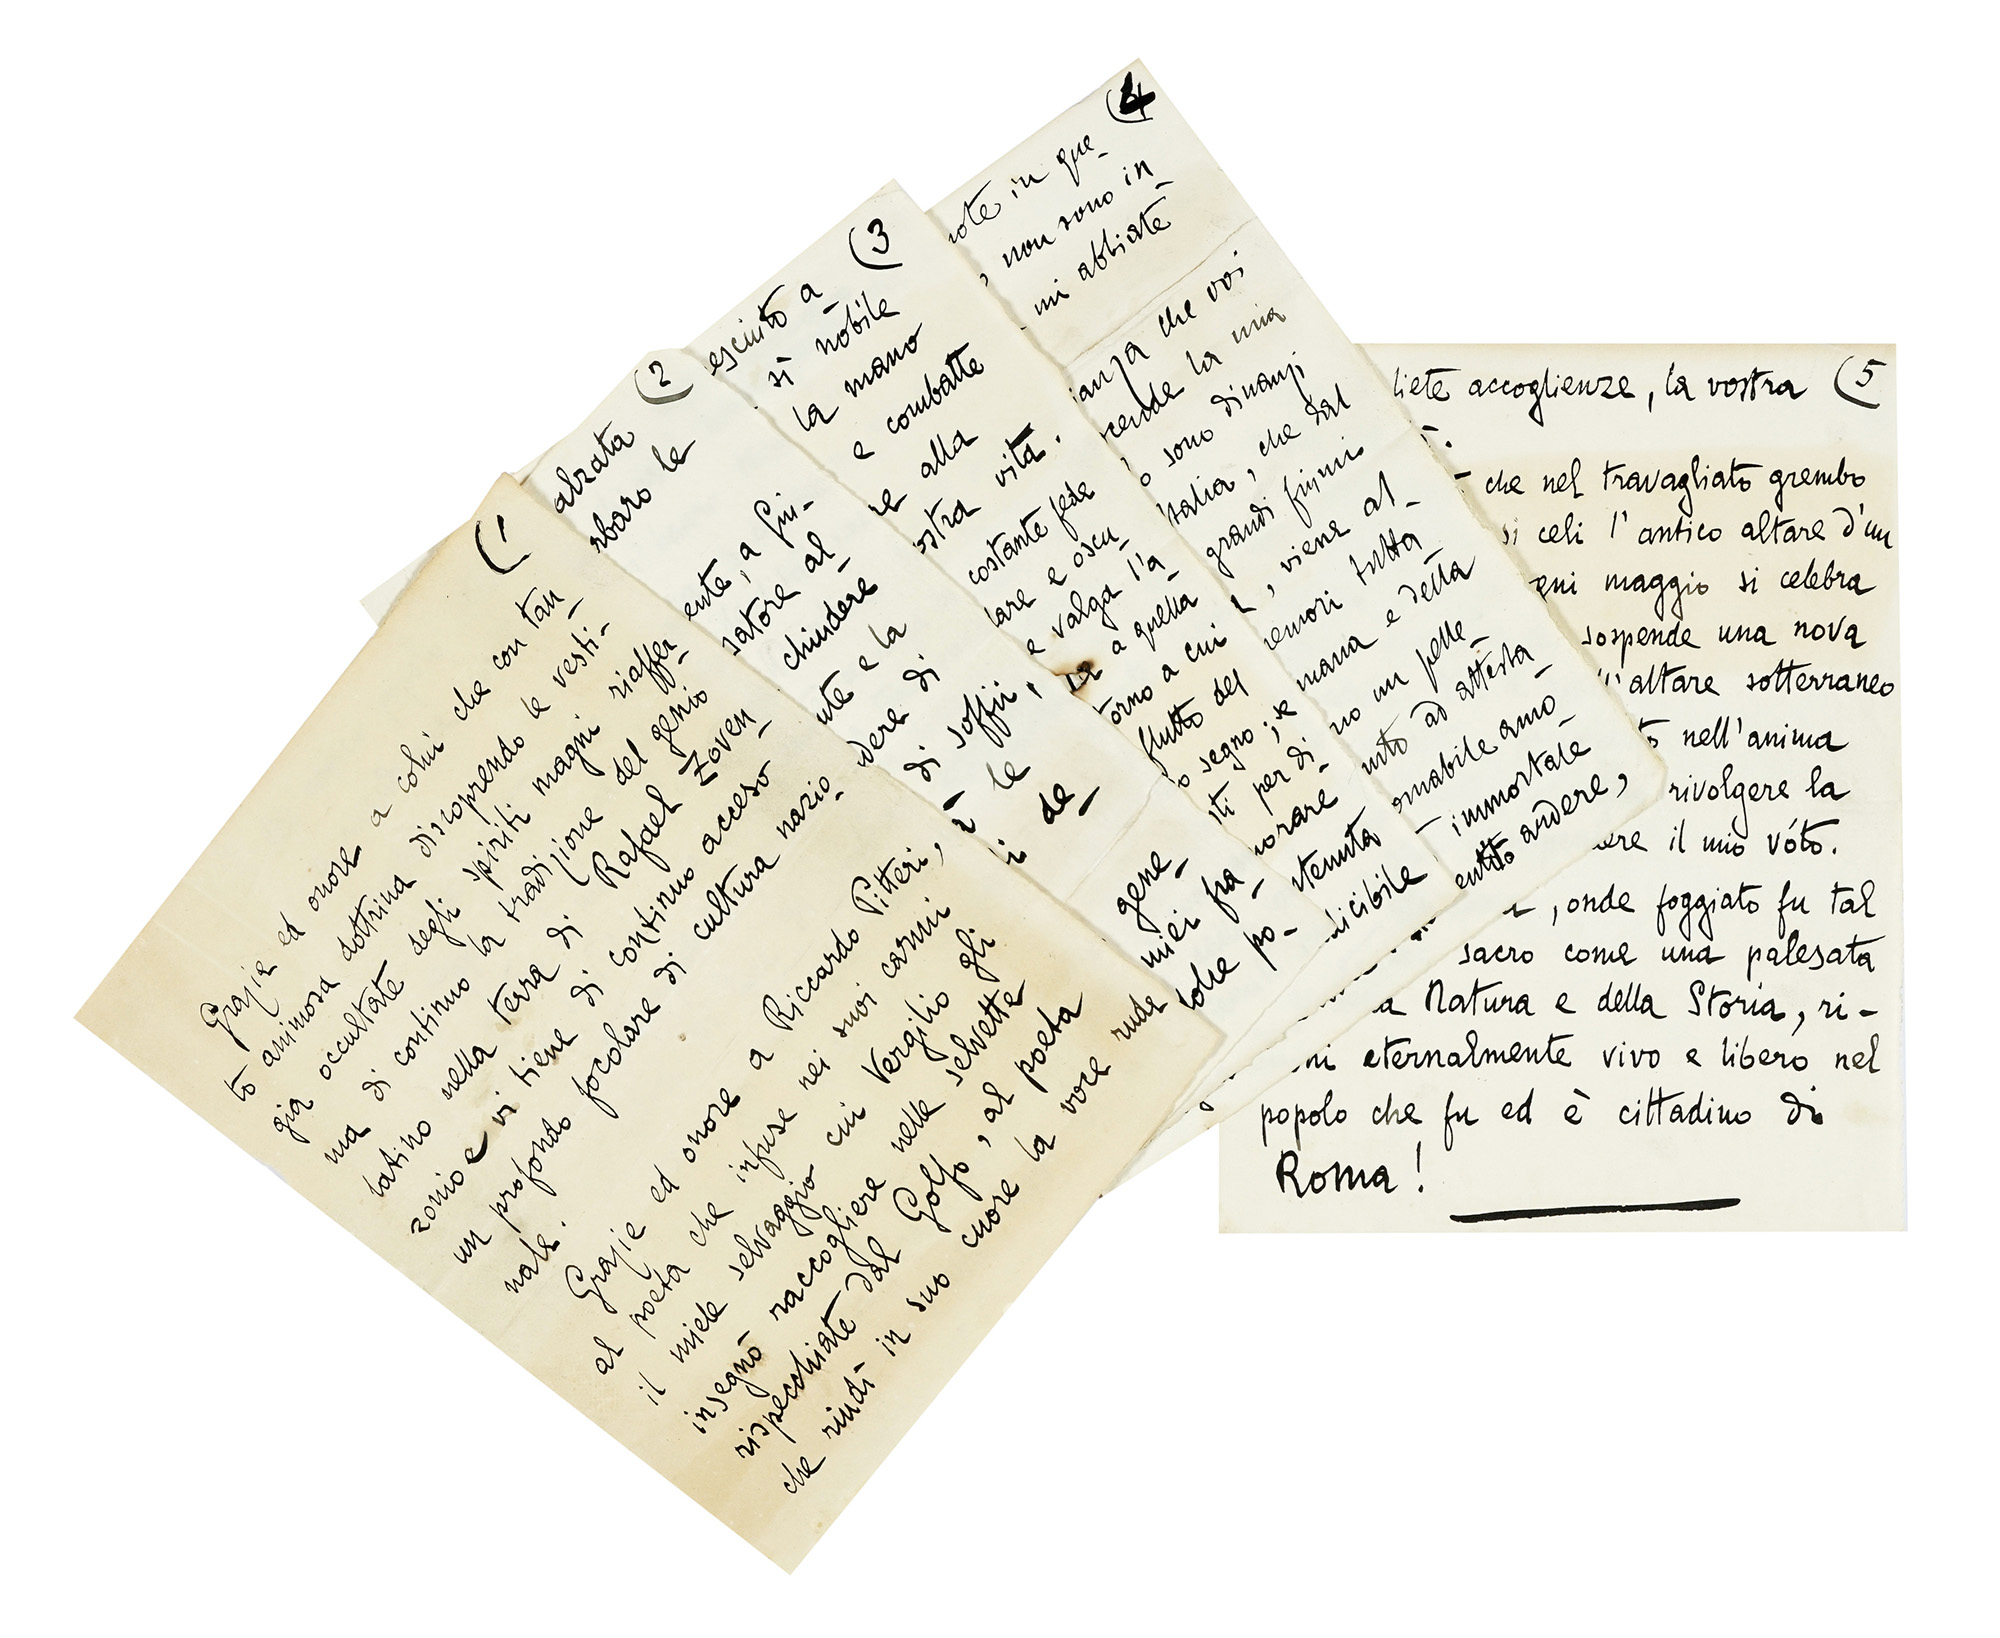 (1
Grazie ed onore a colui che con tan-
to animosa dottrina discoprendo le vesti-
gia occultate degli spiriti magni riaffer-
ma di continuo la tradizione del genio
latino nella terra di Rafael Zoven-
zonio e vi tiene di continuo acceso
un profondo focolare di cultura nazio-
nale.
Grazie ed onore a Riccardo Pitteri,
al poeta che infuse nei suoi carmi
il miele selvaggio cui Vergilio gli
insegnò raccogliere nelle selvette
rispecchiate dal Golfo, al poeta
che riudì in suo cuore la voce rude
(2
alzata
rbaro le
ente, a Giu-
satore al
chiudere
nte e la
dere di
di soffii,
le
de-
gene-
miei fra-
che po-
(3
esciuto a
sì nobile
la mano
e combatte
re alla
ostra vita.
costante fede
lare e oscu-
e valga l'a-
a quella
torno a cui
flutto del
o segno; se
sti per di-
norare
stenuta
dicibile
(4
note in que-
, non sono in-
mi abbiate
anza che voi
cende la mia
o sono dinanzi
Italia, che dal
grandi fiumi
, viene al-
remori tutta
mana e della
no un pelle-
nuto ad attesta-
omabile amo-
immortale
ardere,
(5
liete accoglienze, la vostra
che nel travagliato grembo
si celi l'antico altare d'un
qui maggio si celebra
sospende una nova
l'altare sotterraneo
nell'anima
rivolgere la
ere il mio vóto.
, onde foggiato fu tal
sacro come una palesata
a Natura e della Storia, ri-
ni eternalmente vivo e libero nel
popolo che fu ed è cittadino di
Roma!